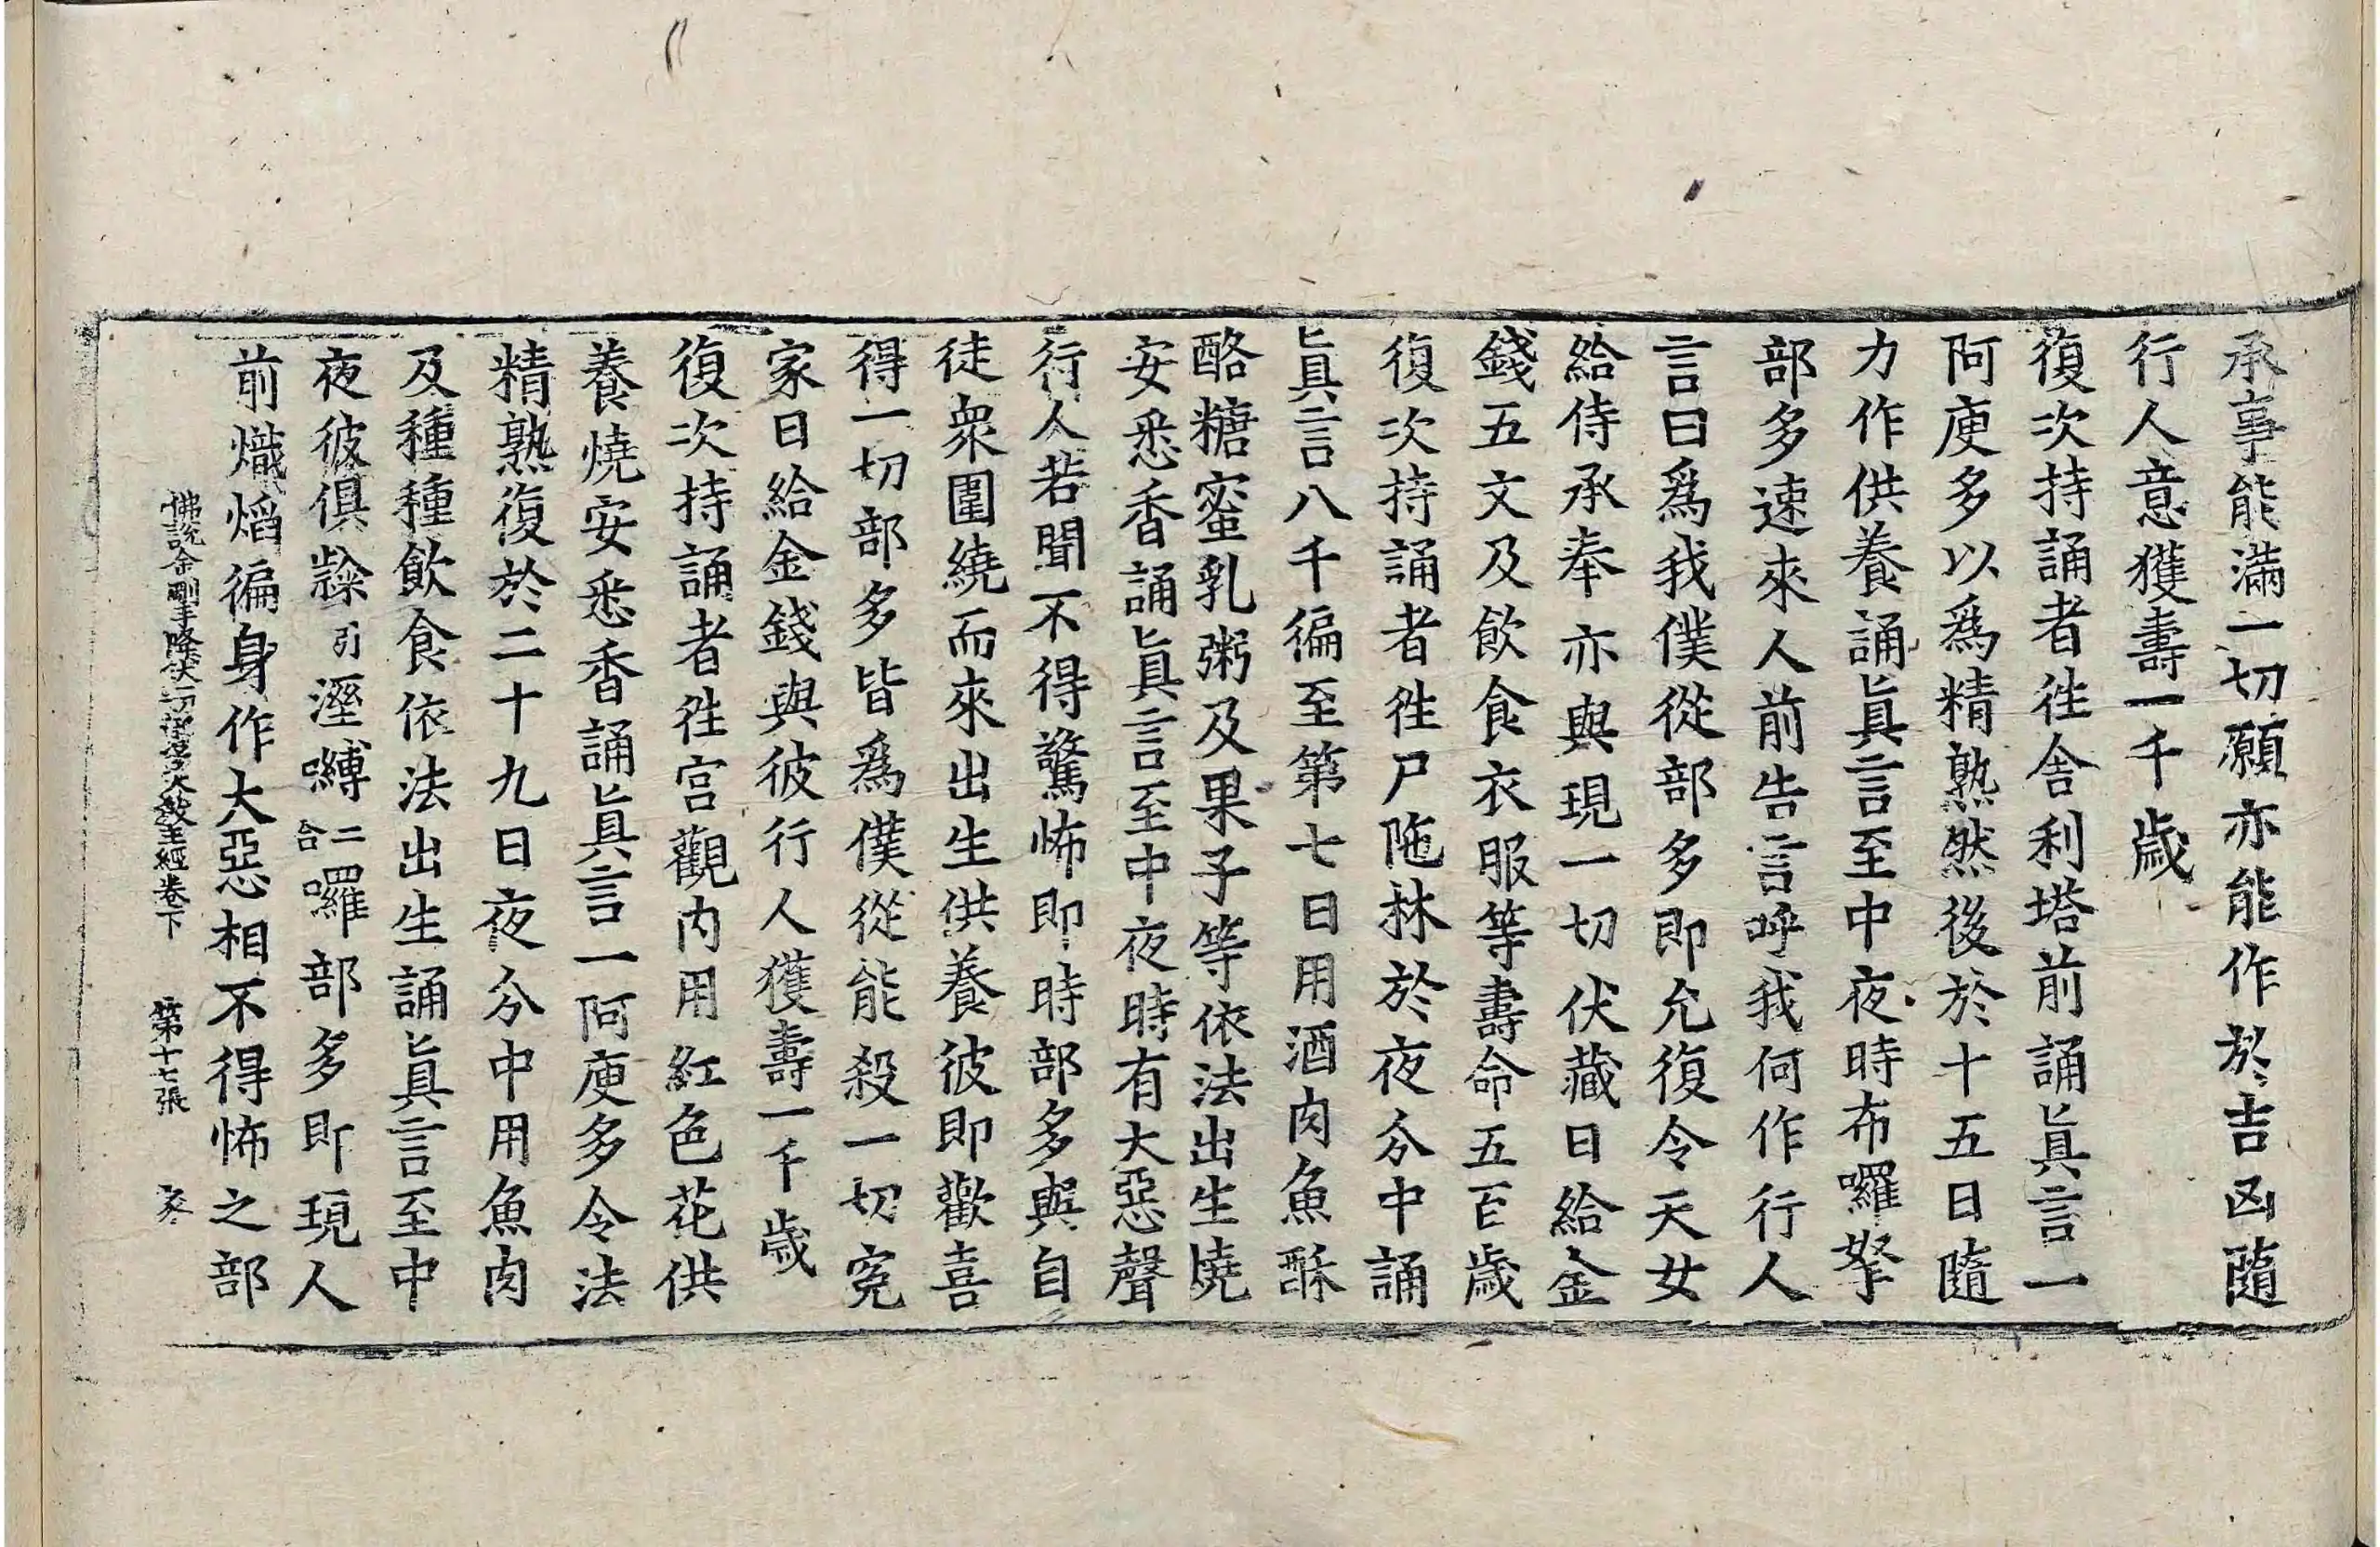 承事能滿一切願亦能作於吉凶隨
行人意獲壽一千歲
復次持誦者徃舍利塔前誦眞言一
阿庾多以爲精熟然後於十五日隨
力作供養誦眞言至中夜時布囉拏
部多速來人前告言呼我何作行人
言曰爲我僕從部多即允復令天女
給侍承奉亦與現一切伏藏日給金
錢五文及飲食衣服等壽命五百歲
復次持誦者徃尸陁林於夜分中誦
眞言八千徧至第七日用酒肉魚酥
酪糖蜜乳粥及果子等依法出生燒
安悉香誦眞言至中夜時有大惡聲
行人若聞不得驚怖即時部多與自
徒衆圍繞而來出生供養彼即歡喜
得一切部多皆爲僕從能殺一切寃
家日給金錢與彼行人獲壽一千歲
復次持誦者徃宮觀內用紅色花供
養燒安悉香誦眞言一阿庾多令法
精熟復於二十九日夜分中用魚肉
及種種飲食依法出生誦眞言至中
夜彼俱㯿引溼嚩二合囉部多即現人
前熾焰徧身作大惡相不得怖之部
佛說金剛手降伏一切部多大教王經卷下 第十七張